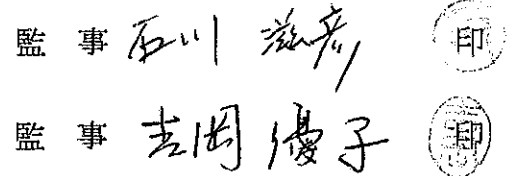 監事 石川 滋彦 印
監事 吉岡 優子 印